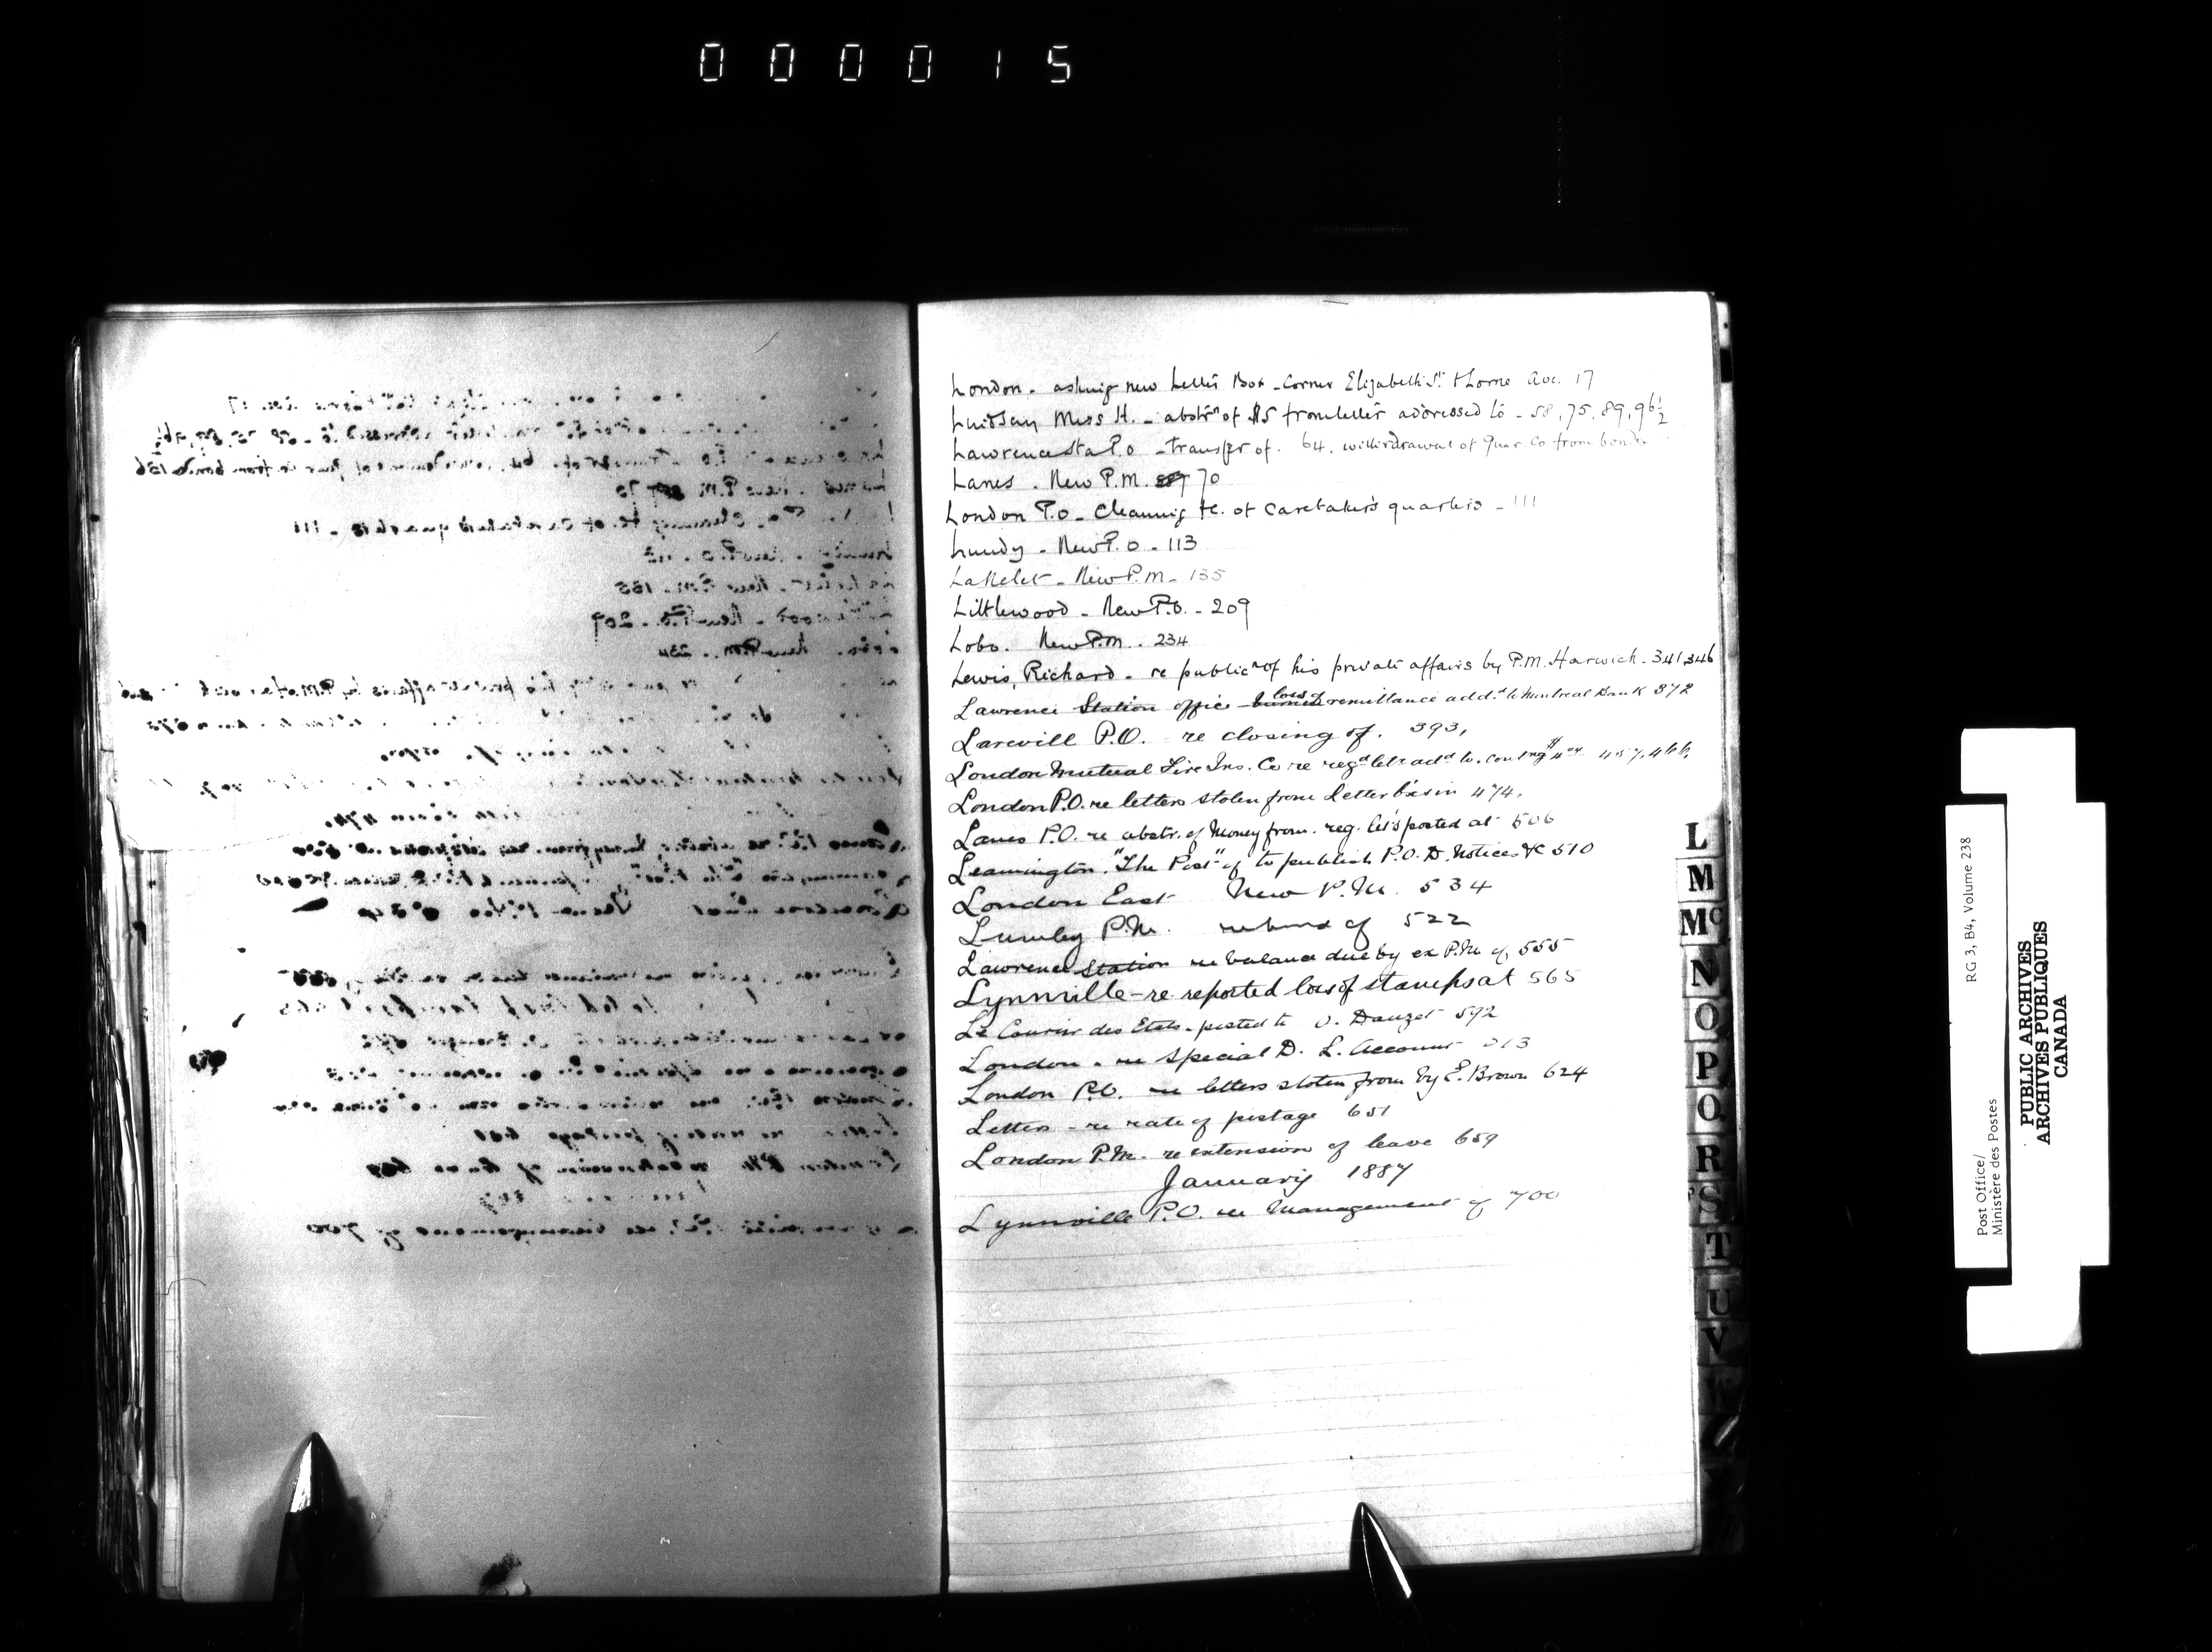 000015
London - asking new Letter Box - Corner Elizabeth St. & Lorne Ave. 17
Lindsay Miss H. - abstrn of $5 from letter addressed to - 58, 75, 89, 96½
Lawrence Sta P.O - transfer of. 64. withdrawal of Guar Co from bonds
Lanes - New P.M. 70
London P.O - Cleaning &c. of Caretaker's quarters - 111
Lundy - New P.O - 113
Lakelet - New P.M - 135
Littlewood - New P.O. - 209
Lobo. New P.M. . 234
Lewis, Richard - re publicn of his private affairs by P.M. Harwich - 341, 346
Lawrence Station office loss of remittance addd to Montreal Bank 372
P.O. re closing of. 393,
London Mutual Fire Ins. Co re regd letr add to. contng 457, 466,
London P.O. re letters stolen from Letter bxs in 474.
Lanes P.O. re abstr. of Money from. reg. let's posted at 506
Leamington. "The Post" of to publish P.O.D. Notices &c 510
London East New P.M. 534
Lumley P.M. of 522
Lawrence Station re balance due by ex P.M of, 555
Lynnville - re reported loss of stamps at 565
Le Courrier des Etats - posted to O. Dauzet 592
London - re Special D. L. Account 613
London P.O. re letters stolen from by E. Brown 624
Letters - re rate of postage 651
London P.M. re extension of leave 659
January 1887
Lynnville P.O. re Management of 700
L
M
Mc
N
O
P
Q
R
S
T
U
V
W
Post Office/
Ministère des Postes
RG 3, B4, Volume 238
PUBLIC ARCHIVES
ARCHIVES PUBLIQUES
CANADA